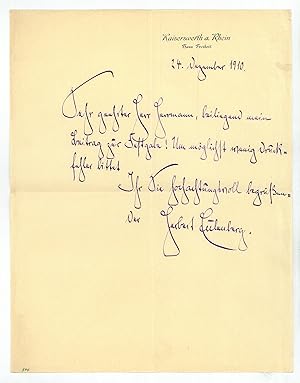 Kaiserswerth a. Rhein
Haus Freiheit
24. Dezember 1910.
Sehr geehrter Herr Herrmann, beiliegend mein
Beitrag zur Festgabe! Um möglichst wenig Druck-
fehler bittet
Ihr Sie hochachtungsvoll begrüßen-
der Herbert Eulenberg.